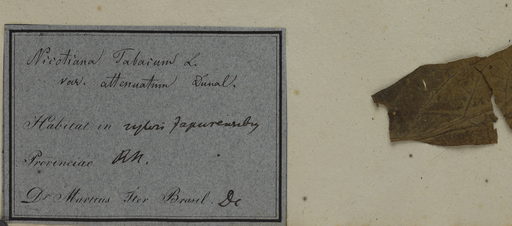 Nicotiana Tabacum L.
var. attenuatum Dunal.
Habitat in sylvis Japurensibus
Provinciae RN.
Dr Martius Iter Brasil. Dc